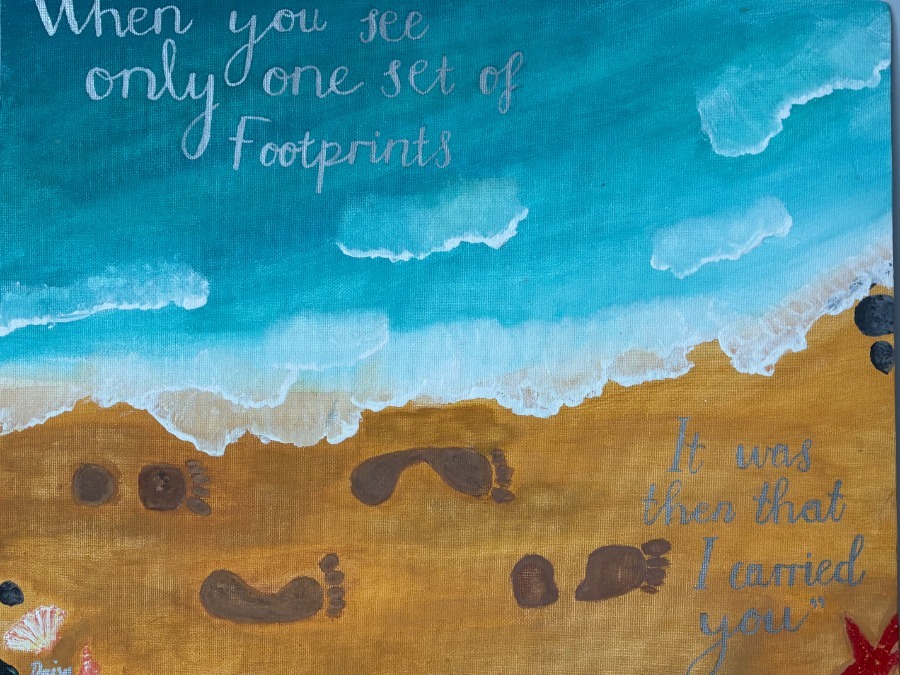 When you see
only one set of
Footprints
It was
then that
I carried
you"
Daisy